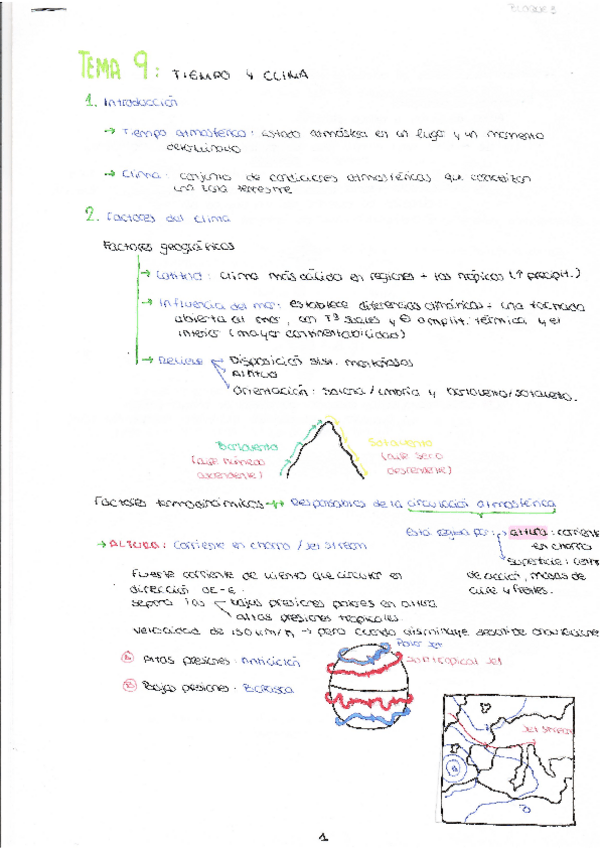 BLOQUE 3
TEMA 9: TIEMPO Y CLIMA
1. Introducción
→ Tiempo atmosférico: estado atmosférico en un lugar y un momento
determinado
→ Clima: conjunto de condiciones atmosféricas que caracterizan
una zona terrestre
2. Factores del clima
Factores geográficos
→ Latitud: clima más cálido en regiones + los trópicos (↑ precipit.)
→ Influencia del mar: establece diferencias climáticas - una fachada
abierta al mar, con Tª suaves y amplit. térmica y el
interior (mayor continentabilidad)
→ Relieve Disposición sist. montañosos
Altitud
Orientación: solana/umbría y barlovento/sotavento.
Barlovento
(aire húmedo
ascendente)
Sotavento
(aire seco
descendente)
Factores termodinámicos → Responsables de la circulación atmosférica
Está regida por: altura: corriente
en chorro
Superficie: centros
de acción, masas de
aire y frentes.
→ ALTURA: Corriente en chorro / Jet Stream
Fuerte corriente de viento que circula en
dirección OE-E.
separa las bajas presiones polares en altura
altas presiones tropicales.
velocidad de 150 km/h → pero cuando disminuye
A Altas presiones: Anticiclón
B Bajas presiones: Borrasca
Polar Jet
Subtropical Jet
Jet Stream
B
1